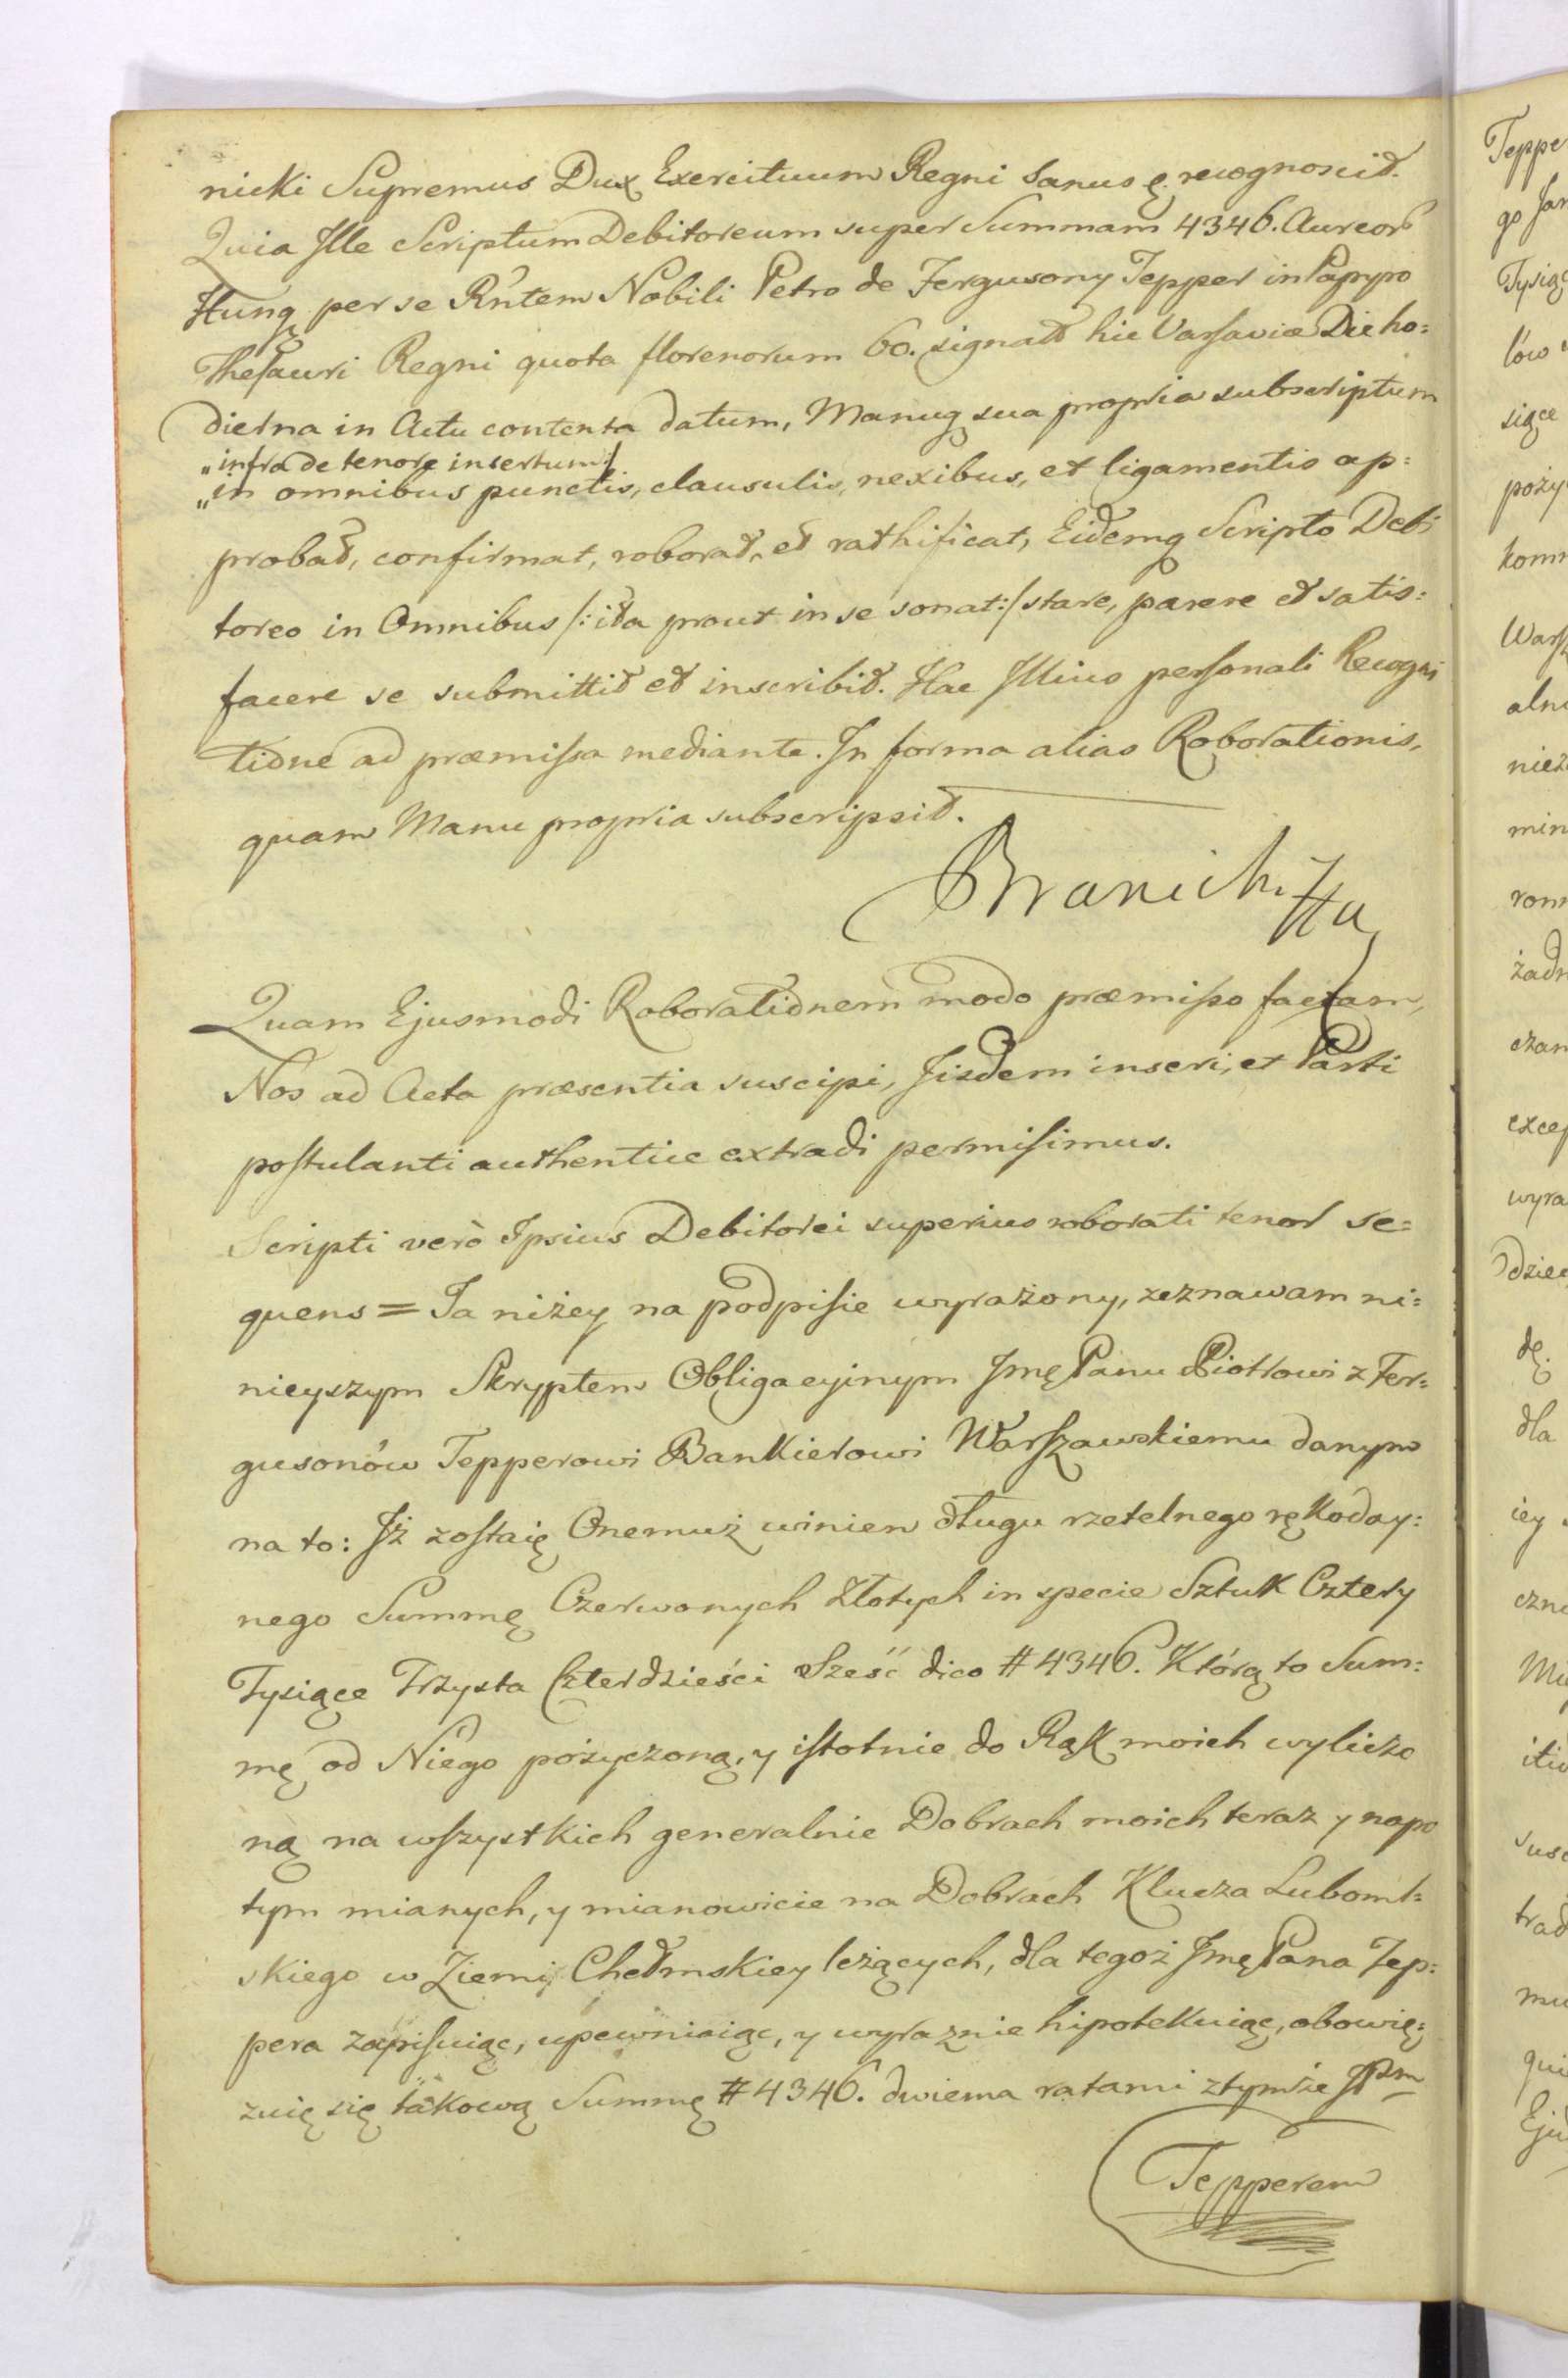 nicki Supremus Dux Exercituum Regni Sanus ę. recognoscit.
Quia Ille Scriptum Debitoreum super Summam 4346. Aureor
Hung per se Rntem Nobili Petro de Fergusony Tepper in Papyro
Thesauri Regni quota florenorum 60. signat hic Varsaviæ Die ho=
dierna in Actu contenta datum, Manuq sua propria subscriptum
„infra de tenore insertum:/
„in omnibus punctis, clausulis, nexibus, et ligamentis ap=
probat, confirmat, roborat, et rathificat, Eidemq Scripto Debi
toreo in Omnibus /:ita prout in se sonat:/ stare, parere et satis=
facere se submittit et inscribit. Hac Illius personali Recogni
tione ad præmissa mediante. In forma alias Roborationis,
quam Manu propria subscripsit.
Branicki Ha
Quam Ejusmodi Roborationem modo præmisso factam,
Nos ad Acta præsentia suscipi, Iisdem inseri, et Parti
postulanti authentice extradi permisimus.
Scripti verò Ipsius Debitorei superius roborati tenor se=
quens = Ja niżey na podpisie wyrażony, zeznawam ni=
nieyszym Skryptem Obligacyinym Jmę Panu Piotrowi z Fer=
gusonów Tepperowi Bankierowi Warszawskiemu danym
na to: Jż zostaię Onemuż winien długu rzetelnego rękoday=
nego Summę Czerwonych Złotych in specie Sztuk Cztery
Tysiące Trzysta Czterdzieści Sześć dico # 4346. Którą to Sum=
mę od Niego pożyczoną, y istotnie do Rąk moich wylicżo
ną na wszystkich generalnie Dobrach moich teraz y napo
tym mianych, y mianowicie na Dobrach Klucza Luboml=
skiego w Ziemi Chełmskiey leżących, dla tegoż Jmę Pana Tep=
pera zapisuiąc, upewniaiąc, y wyraznie hipotekuiąc, obowię=
zuię się takową Summę # 4346. dwiema ratami z tymże JPm
Tepperem
Teppe
go Jan
Tysiąc
lów
siące
poży
komm
Warsz
alne
nież
min
rom
żadn
czan
excep
wyra
dzie
dę.
dla
iey
czne
itio
susc
trad
mu
qui
Eju